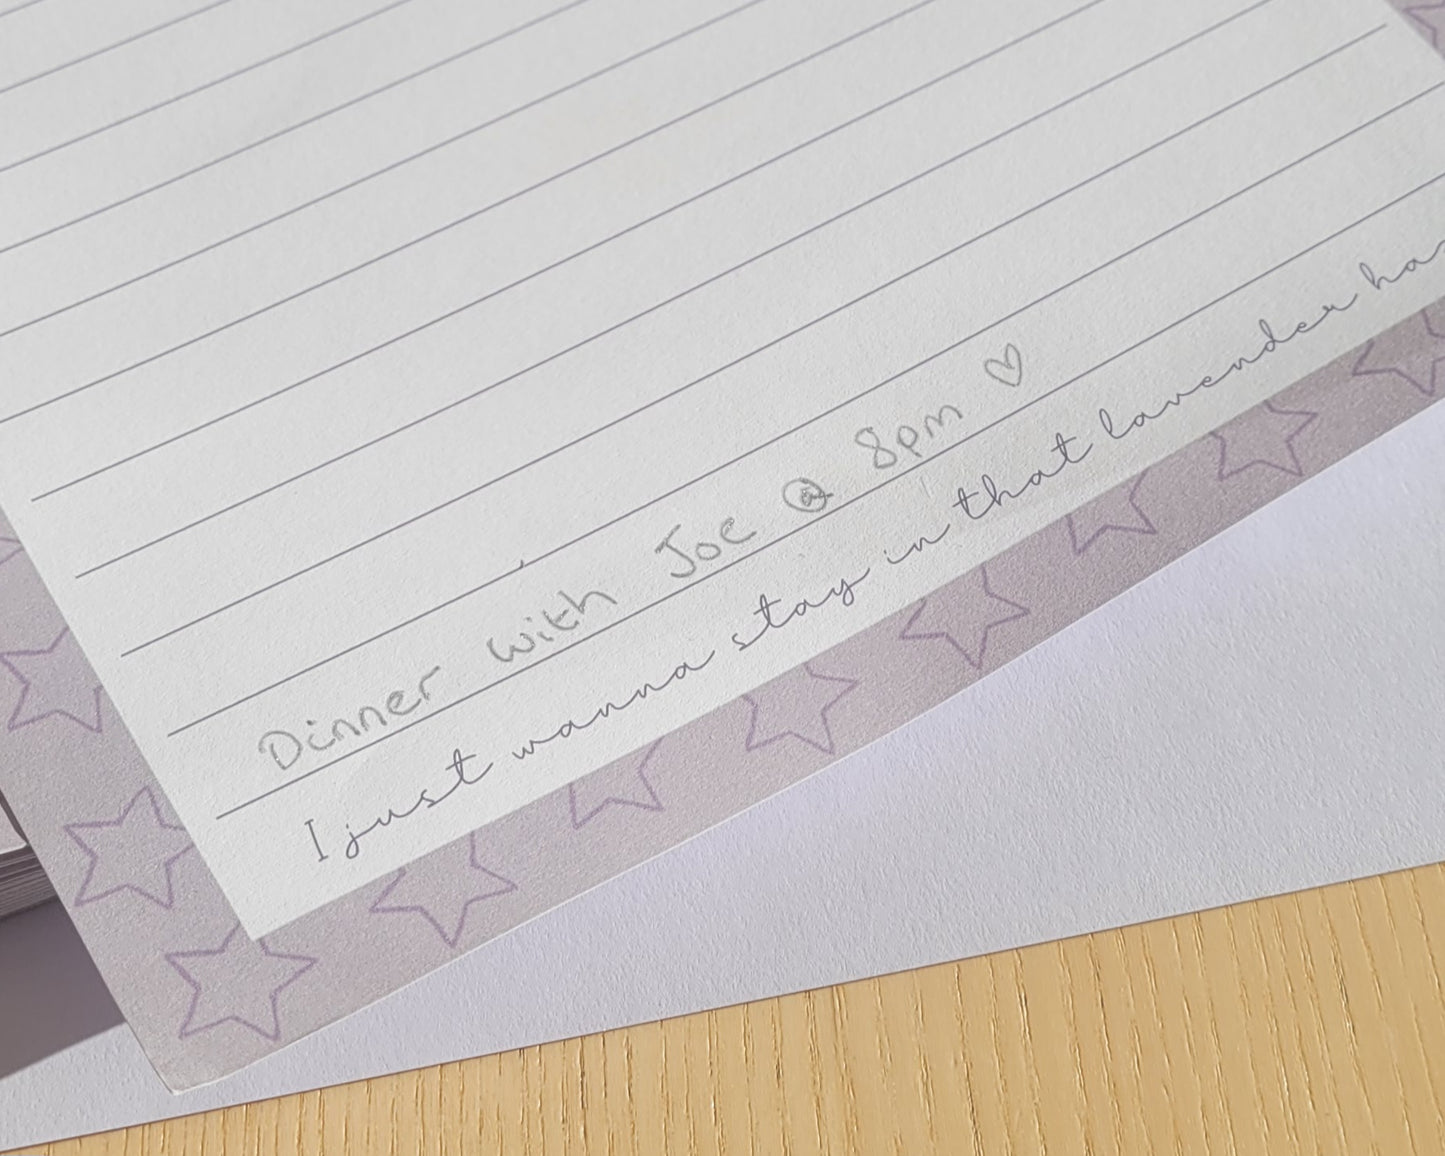 Dinner with Joe @ 8pm ♡
I just wanna stay in that lavender